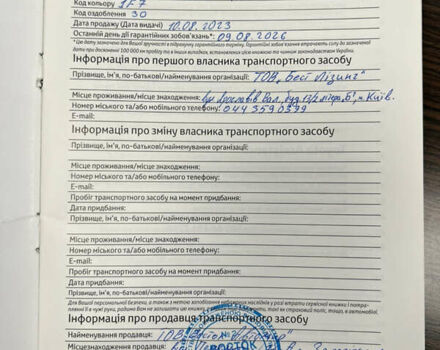 Код кольору 1F7
Код оздоблення 30
Дата продажу (Дата видачі) 10.08.2023
Останній день дії гарантійних зобов'язань*: 09.08.2026
Інформація про першого власника транспортного засобу
Прізвище, ім'я, по-батькові/найменування організації: ТОВ „Бест Лізинг"
Місце проживання/місце знаходження: вул Ярославів Вал, буд 13/2 літера „Б", м Київ.
Номер міського та/або мобільного телефону: 0443590399
E-mail:
Інформація про зміну власника транспортного засобу
Прізвище, ім'я, по-батькові/найменування організації:
Місце проживання/місце знаходження:
Номер міського та/або мобільного телефону:
E-mail:
Пробіг транспортного засобу на момент придбання:
Дата придбання:
Прізвище, ім'я, по-батькові/найменування організації:
Місце проживання/місце знаходження:
Номер міського та/або мобільного телефону:
E-mail:
Пробіг транспортного засобу на момент придбання:
Дата придбання:
Прізвище, ім'я, по-батькові/найменування організації:
Інформація про продавця транспортного засобу
Найменування продавця: ТОВ
Місцезнаходження продавця: